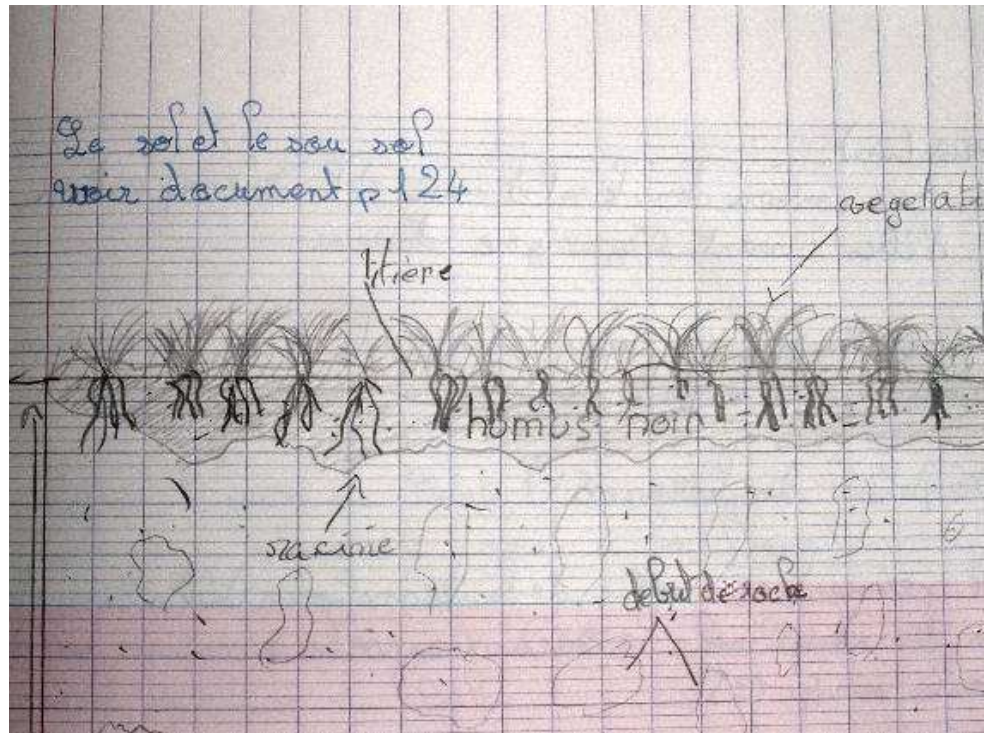 Le sol et le sou sol
voir document p 124
vegetati
litière
humus noir
racine
debut de roche